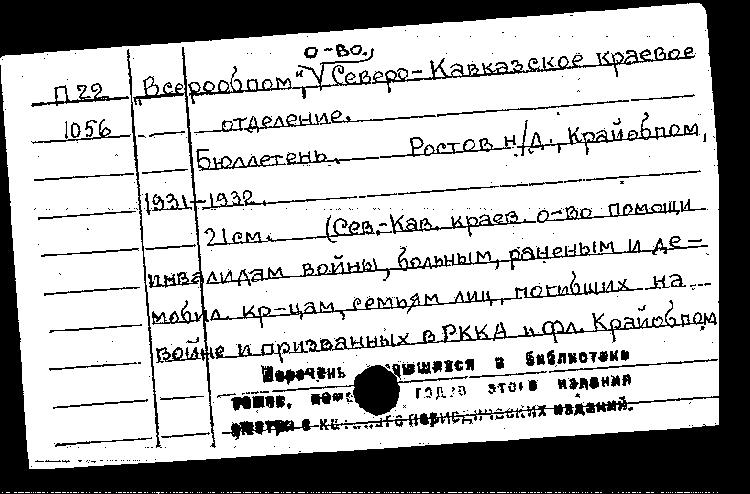 о-во,
П 22 „Всерообпом“, √ Северо-Кавказское краевое
1056 отделение.
Бюллетень. Ростов н/Д., Крайобпом,
1931-1932.
21 см. (Сев.-Кав. краев. о-во помощи
инвалидам войны, больным, раненым и де-
мобил. кр-цам, семьям лиц, погибших на
войне и призванных в РККА и фл. Крайобпом
Перечень имеющихся в библиотеке
годов этого издания
смотри в каталоге периодических изданий.